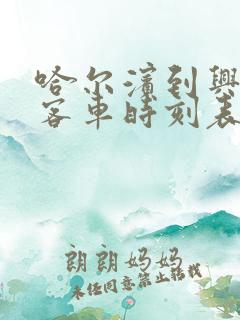 哈尔滨到興
客車時刻表
朗朗妈妈
未经同意禁止转载